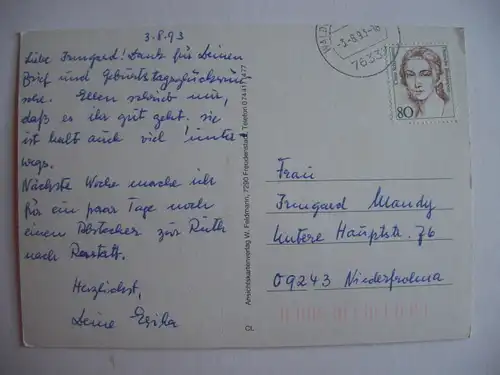 3.8.93
Liebe Irmgard! Dank für Deinen
Brief und Geburtstagsglückwün-
sche. Ellen schrieb mir,
daß es ihr gut geht. Sie
ist halt auch viel unter-
wegs.
Nächste Woche mache ich
für ein paar Tage noch
einen Abstecher zur Ruth
nach Rastatt.
Herzlichst,
Deine Erika
Ansichtskartenverlag W. Feldmann, 7290 Freudenstadt, Telefon 07441/
CL
WALD
-3.-8.93-
7633
80
Frau
Irmgard Mandy
Untere Hauptstr. 76
09243 Niederfrohna